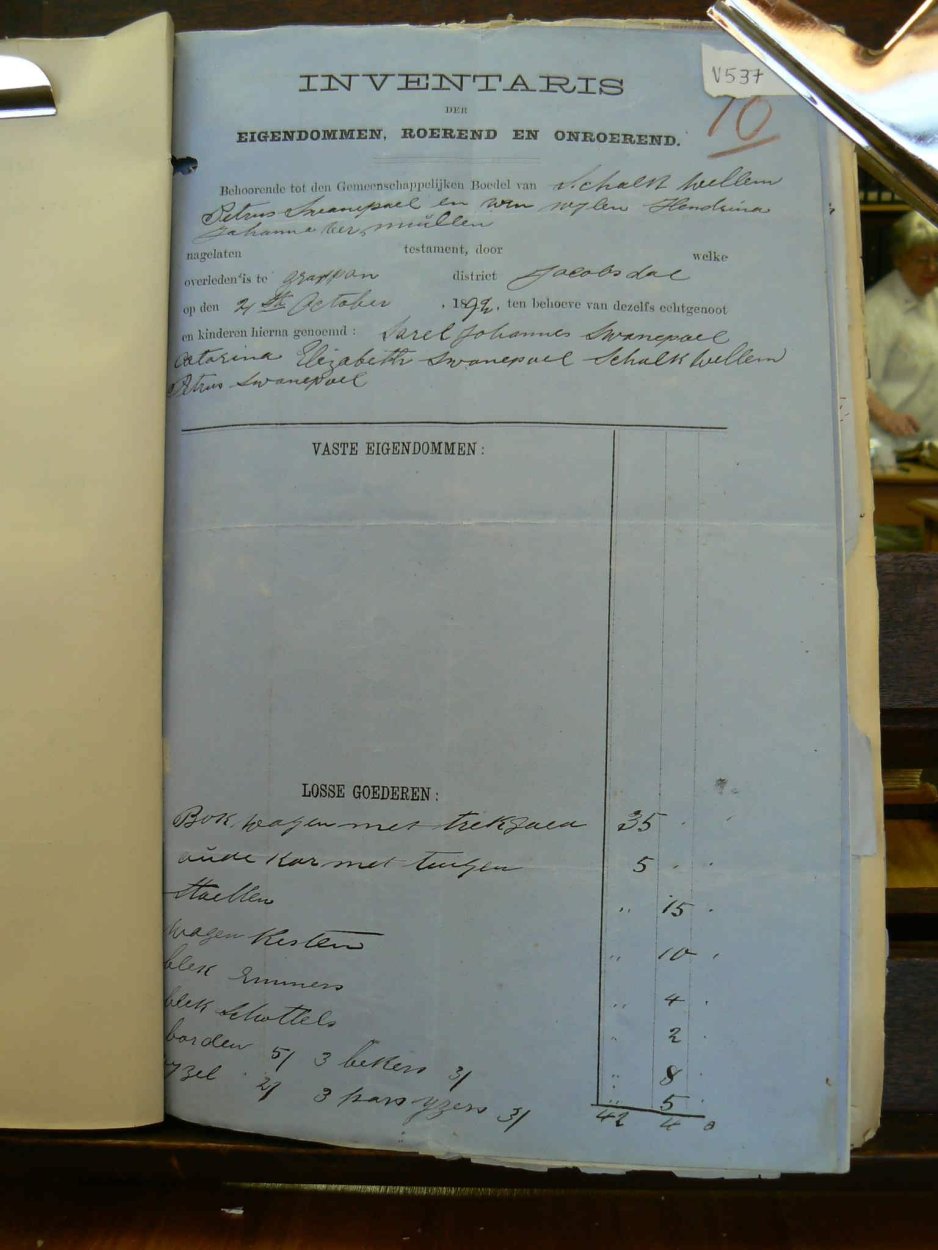 V537
10
INVENTARIS
DER
EIGENDOMMEN, ROEREND EN ONROEREND.
Behoorende tot den Gemeenschappelijken Boedel van Schalk Wellem
Petrus Swanepoel en wylen Hendrina
Johanna Vermüllen
nagelaten testament, door welke
overleden is te district Jacobsdal
op den 24 ste October , 1892, ten behoeve van dezelfs echtgenoot
en kinderen hierna genoemd : Karel Johannes Swanepoel
Catarina Elizabeth Swanepoel Schalk Wellem
Petrus Swanepoel
VASTE EIGENDOMMEN :
LOSSE GOEDEREN :
Bok wagen met trekgoed 35 " "
oude kar met tuigen 5 " "
Stoellen " 15 "
Wagen Kesten " 10 "
blek Emmers " 4 "
blek Schottels " 2 "
borden 5/ 3 bekers 3/ " 8 "
2/ 3 pars yzers 3/ " 5 "
42 4 0